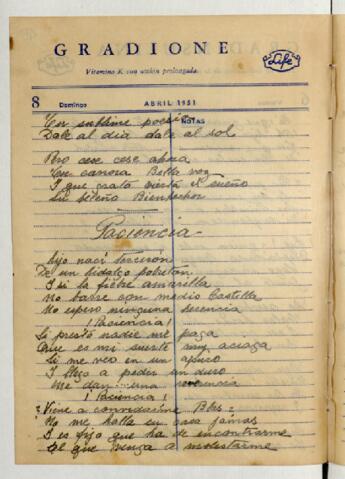 GRADIONE
Life
Vitamina K con acción prolongada.
8 Domingo ABRIL 1951
NOTAS
Con sublime poesia
Dale al dia dale al sol
Pero cese cese ahora
Tu canora Bella voz
I que grata el sueño
Su Bienhechor
Paciencia
Hijo nací tercerón
De un hidalgo pobretón
I si la fiebre amarilla
No barre con medio Castilla
No espero ninguna herencia
¡Paciencia!
Si presto nadie me paga
Que es mi suerte muy aciaga
Si me veo en un apuro
I llego a pedir un duro
Me dan una
¡Paciencia!
Viene a convidarme Blas
No me halla en casa jamas
I es fijo que ha de encontrarme
El que venga a molestarme